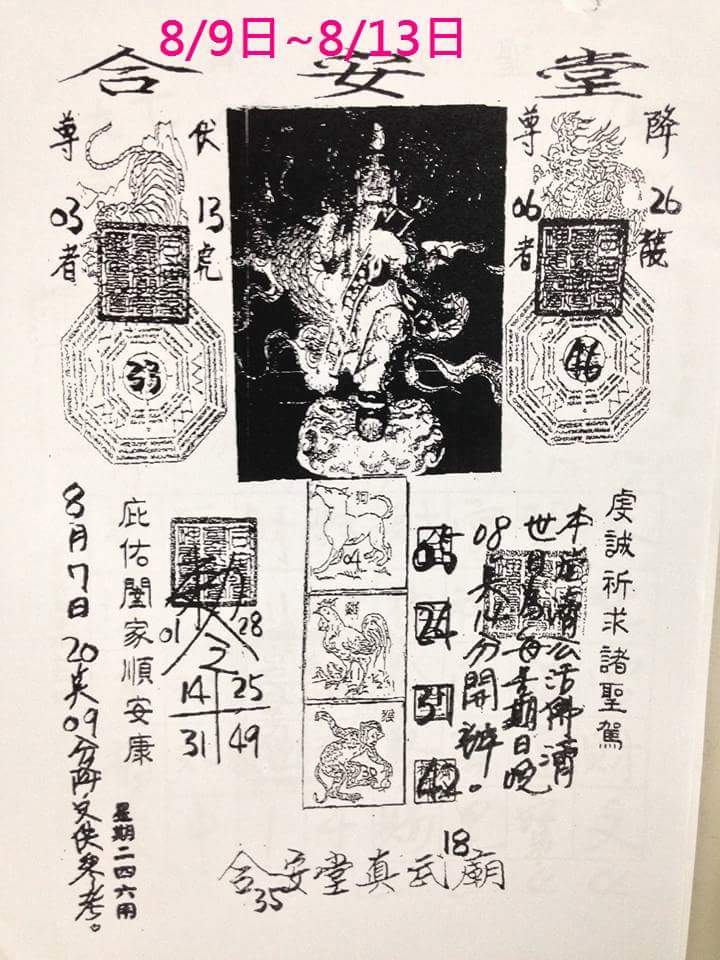 8/9日~8/13日
合安堂
伏虎
13
尊者
03
降龍
26
尊者
06
弱
虔誠祈求諸聖駕
本堂濟公活佛濟
世日為每星期日晚
08 點
分開辦。
狗
04
雞
猴
05
24
37
42
勅令
01 28
14 25
31 49
庇佑闔家順安康
8月7日20點09分降文供參考。
星期二四六用
合安堂真武廟
18
35